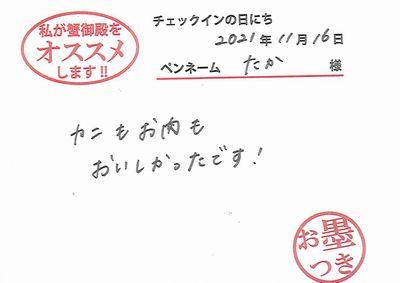 私が蟹御殿を
オススメ
します!!
チェックインの日にち
2021年11月16日
ペンネーム たか 様
カニもお肉も
おいしかったです!
お墨
つき